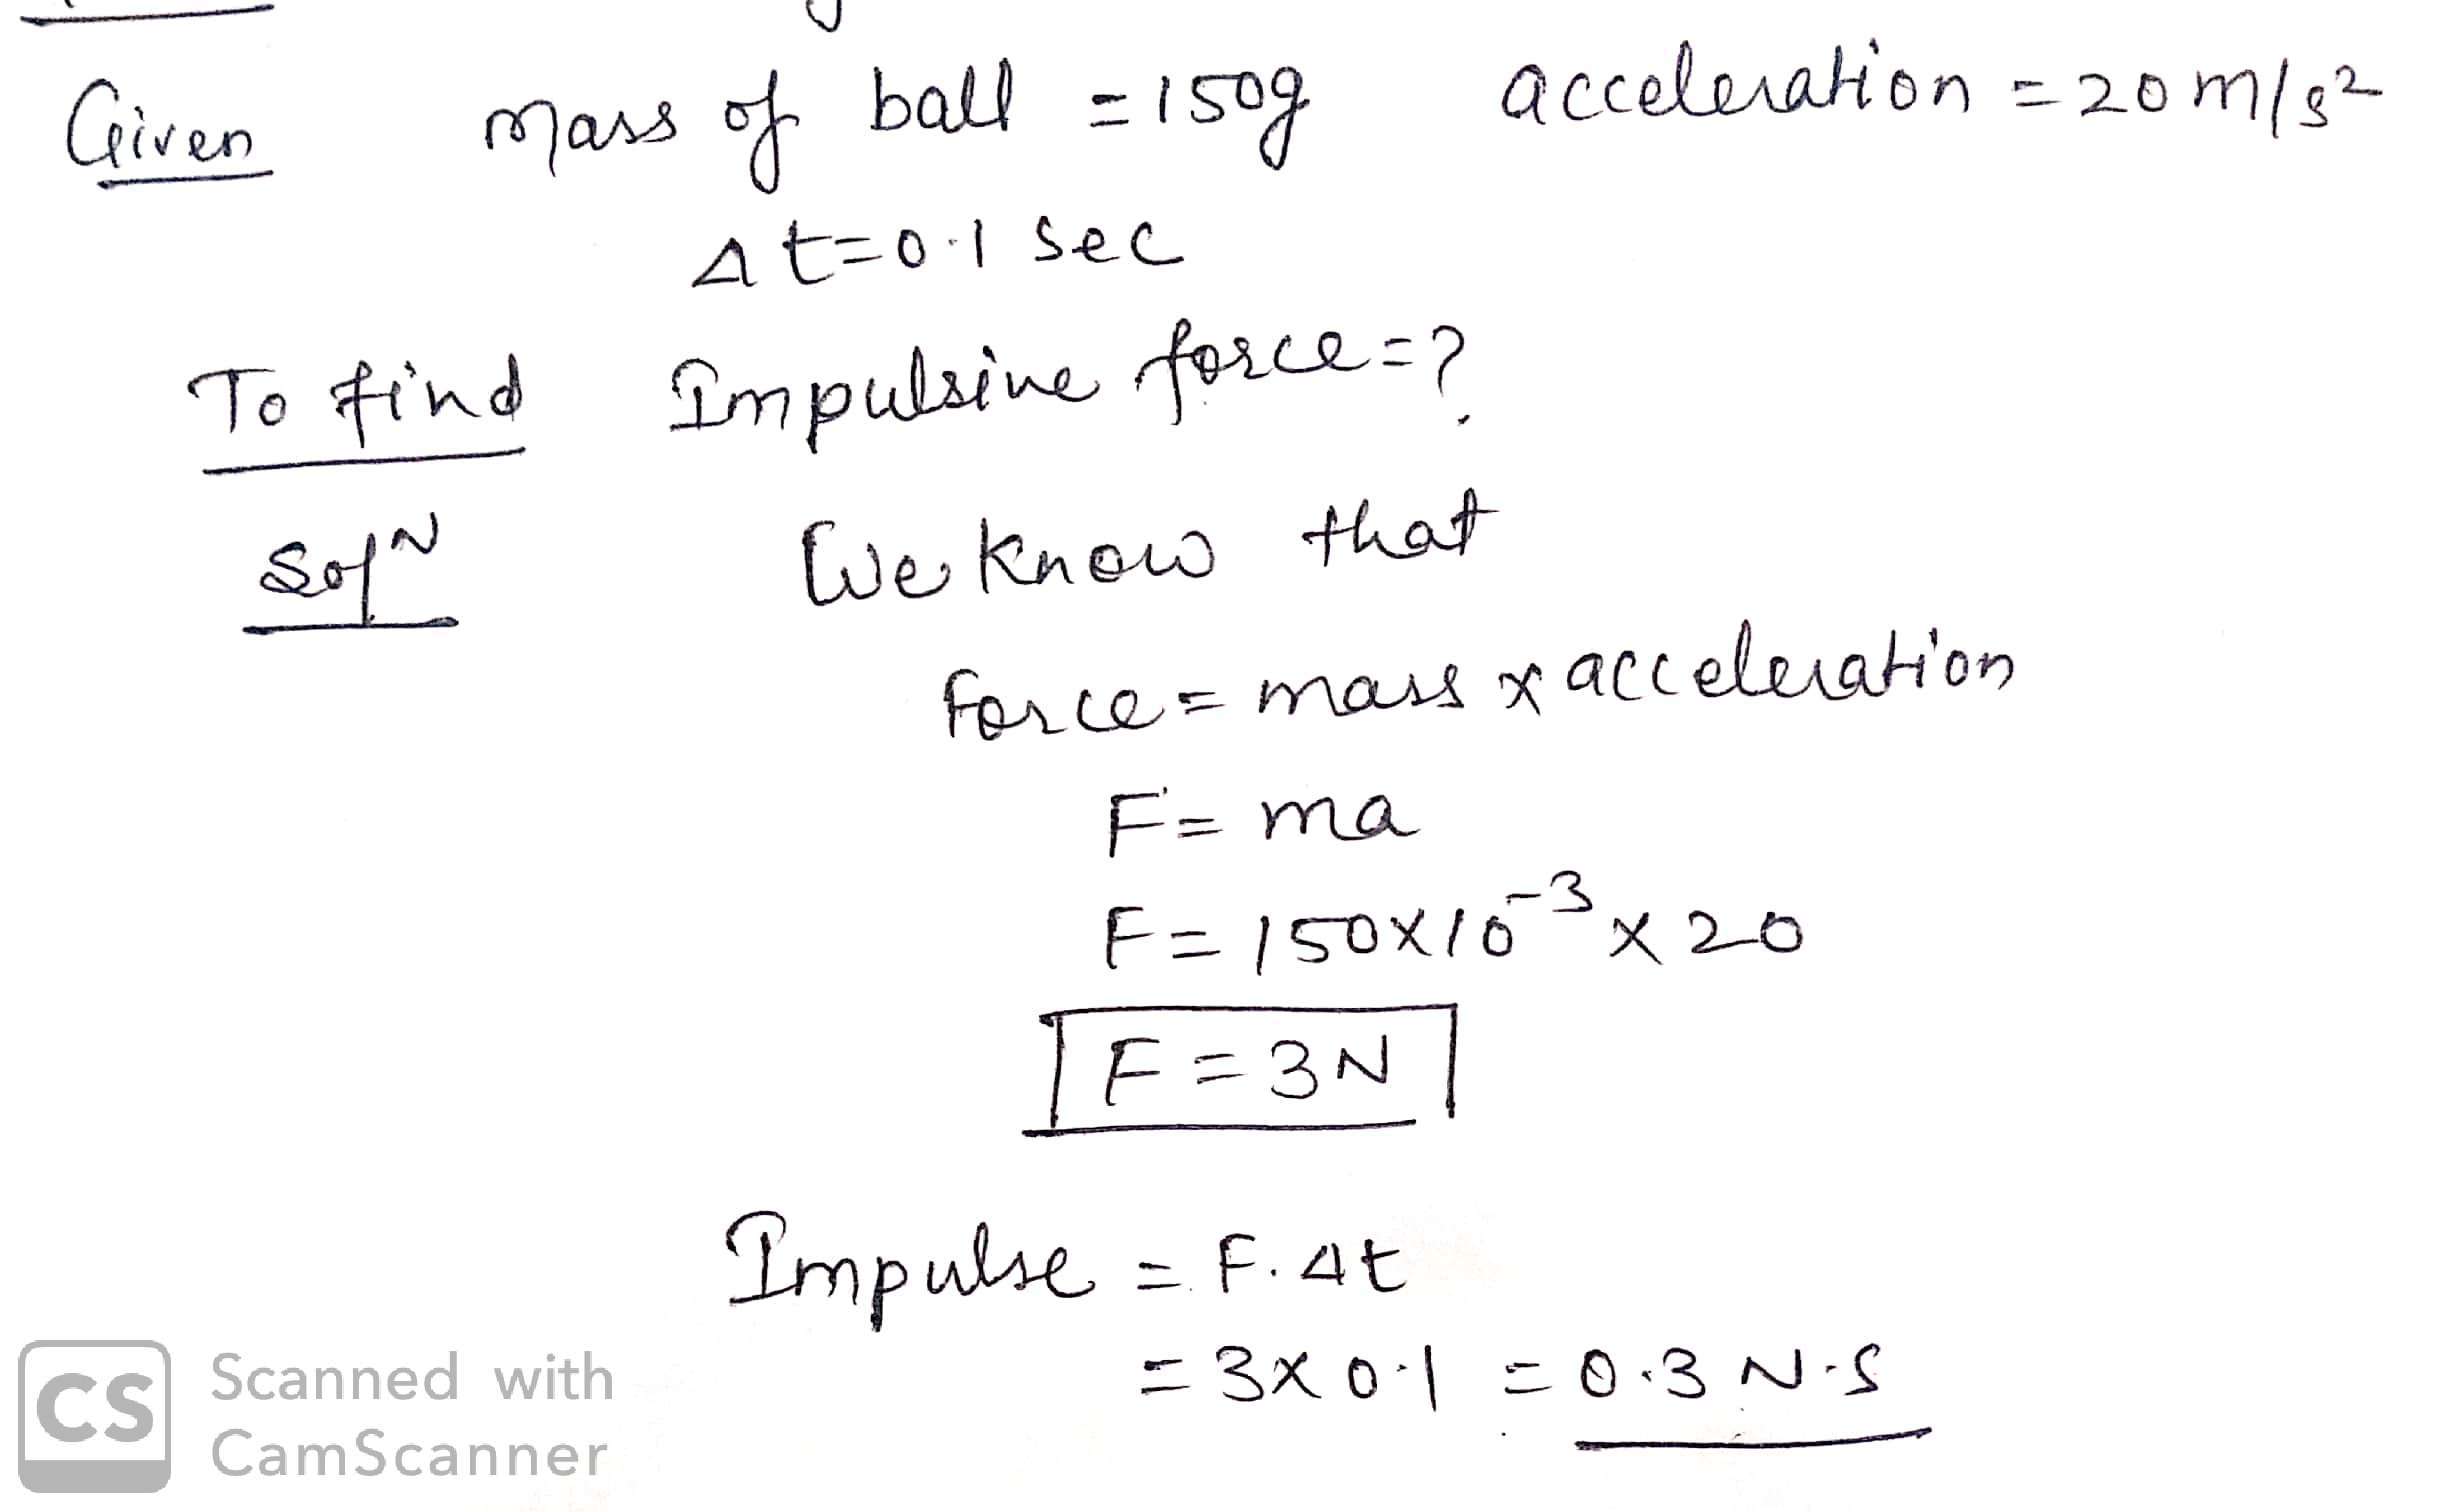 Given mass of ball = 150g acceleration = 20 m/s²
Δt=0.1 sec
To find Impulsive force=?
Solⁿ We know that
Force = mass x acceleration
F = ma
F = 150x10⁻³ x 20
F = 3N
Impulse = F.Δt
= 3x0.1 = 0.3 N.S
CS Scanned with
CamScanner